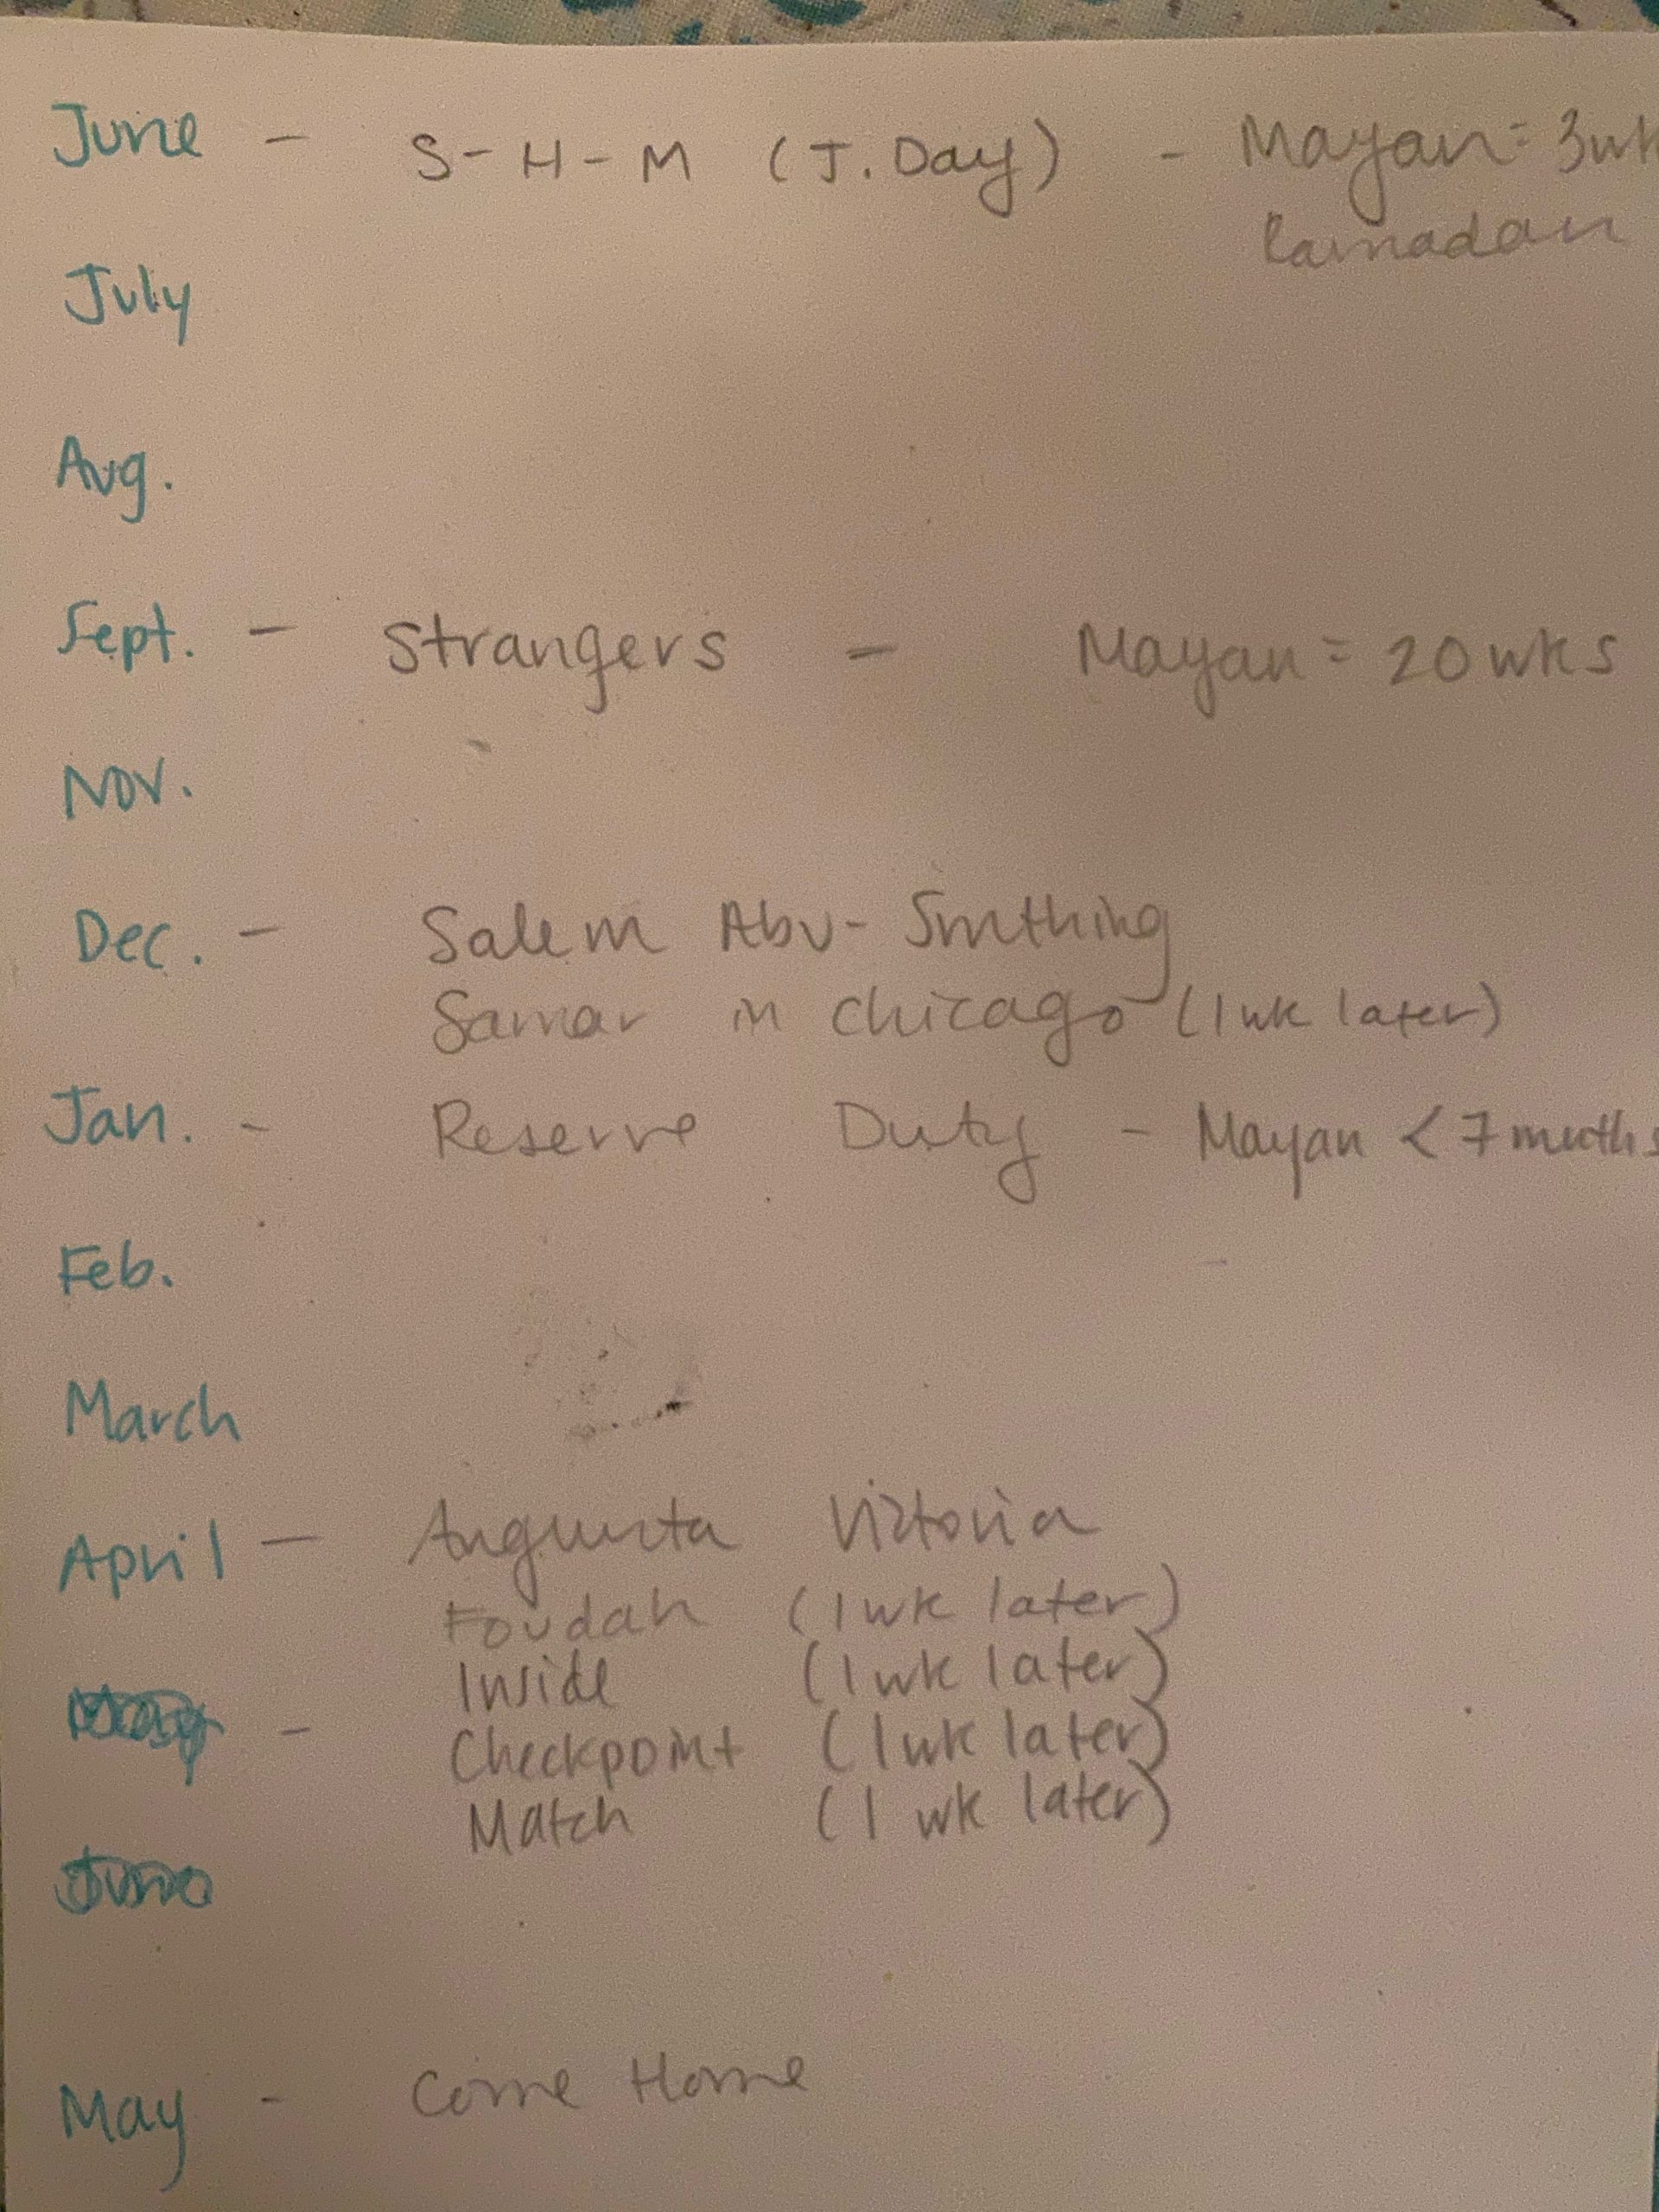 June - S-H-M (J. Day) - Mayan = 3wk
Ramadan
July
Aug.
Sept. - Strangers - Mayan = 20 wks
Nov.
Dec. - Salem Abu-Smthing
Samar in Chicago (1 wk later)
Jan. - Reserve Duty - Mayan < 7 months
Feb.
March
April - Augusta Victoria
Foudah (1 wk later)
Inside (1 wk later)
- Checkpoint (1 wk later)
Match (1 wk later)
May - Come Home